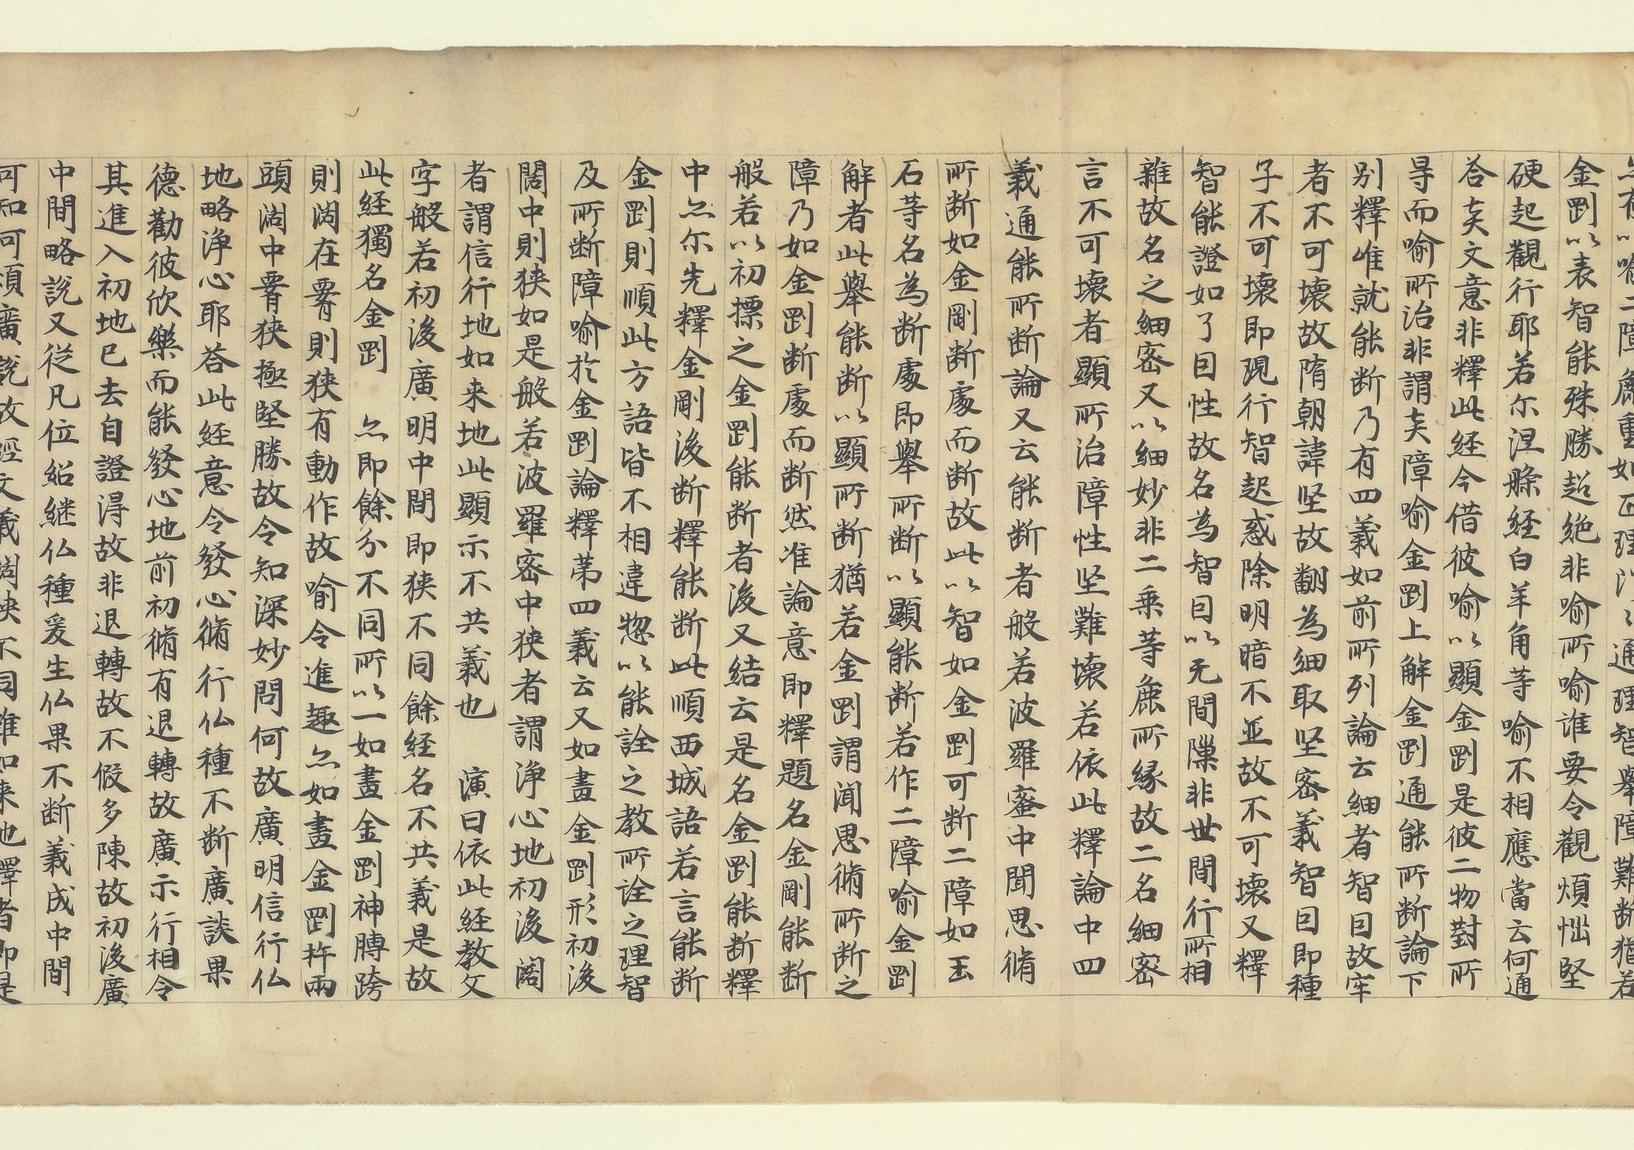 金剛以表智能殊勝超絶非喻所喻誰要令觀煩惱堅
硬起觀行耶若尔涅槃經白羊角等喻不相應當云何通
荅夫文意非釋此經今借彼喻以顯金剛是彼二物對所
㝵而喻所治非謂夫障喻金剛上解金剛通能所断論下
别釋唯就能断乃有四義如前所列論云細者智因故牢
者不可壊故隋朝諱坚故翻為細取坚密義智因即種
子不可壊即現行智起惑除明暗不並故不可壊又釋
智能證如了因性故名為智因以无間隟非世間行所相
雜故名之細密又以細妙非二乘等麁所縁故二名細密
言不可壊者顯所治障性坚難壊若依此釋論中四
義通能所断論又云能断者般若波羅蜜中聞思脩
所断如金剛断處而断故此以智如金剛可断二障如玉
石等名為断處即舉所断以顯能断若作二障喻金剛
解者此舉能断以顯所断猶若金剛謂聞思脩所断之
障乃如金剛断處而断然准論意即釋題名金剛能断
般若以初摽之金剛能断者後又結云是名金剛能断釋
中亦尔先釋金剛後断釋能断此順西域語若言能断
金剛則順此方語皆不相違惣以能詮之教所詮之理智
及所断障喻於金剛論釋苐四義云又如畫金剛形初後
闊中則狭如是般若波羅密中狭者謂浄心地初後闊
者謂信行地如来地此顯示不共義也　演曰依此經教文
字般若初後廣明中間即狭不同餘經名不共義是故
此經獨名金剛　亦即餘分不同所以一如畫金剛神膊跨
則闊在署則狭有動作故喻令進趣亦如畫金剛杵兩
頭闊中署狭極堅勝故令知深妙問何故廣明信行仏
地略浄心耶荅此經意令發心脩行仏種不断廣談果
德勸彼欣樂而能發心地前初脩有退轉故廣示行相令
其進入初地已去自證得故非退轉故不假多陳故初後廣
中間略說又從凡位紹継仏種爰生仏果不断義成中間